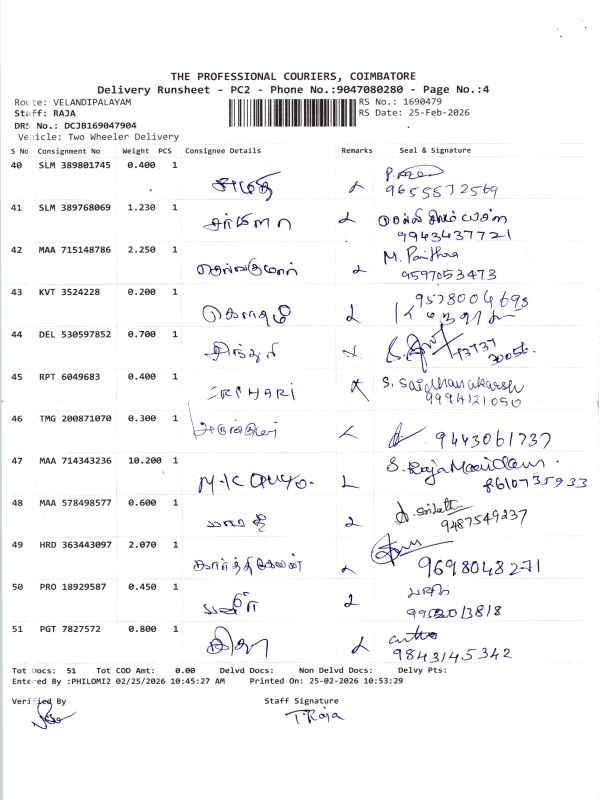 THE PROFESSIONAL COURIERS, COIMBATORE
Delivery Runsheet - PC2 - Phone No.:9047080280 - Page No.:4
Route: VELANDIPALAYAM RS No.: 1690479
Staff: RAJA RS Date: 25-Feb-2026
DRS No.: DCJB169047904
Vehicle: Two Wheeler Delivery
S No Consignment No Weight PCS Consignee Details Remarks Seal & Signature
40 SLM 389801745 0.400 1
9655572569
41 SLM 389768069 1.230 1
9943437721
42 MAA 715148786 2.250 1 செல்வகுமார் M. Pavithra
9597053473
43 KVT 3524228 0.200 1 கௌதமி 9578004693
44 DEL 530597852 0.700 1
45 RPT 6049683 0.400 1 SRIHARI S. Saidhanakarsh
9994121050
46 TMG 200871070 0.300 1 அருண்குமார் 9443061737
47 MAA 714343236 10.200 1 S. RajaManickam
8610735933
48 MAA 578498577 0.600 1 பாலாஜி
9487549237
49 HRD 363443097 2.070 1 கார்த்திகேயன் 9698048271
50 PRO 18929587 0.450 1 பஷீர்
51 PGT 7827572 0.800 1
9843145342
Tot Docs: 51 Tot COD Amt: 0.00 Delvd Docs: Non Delvd Docs: Delvy Pts:
Entered By :PHILOMI2 02/25/2026 10:45:27 AM Printed On: 25-02-2026 10:53:29
Verified By Staff Signature
T. Raja